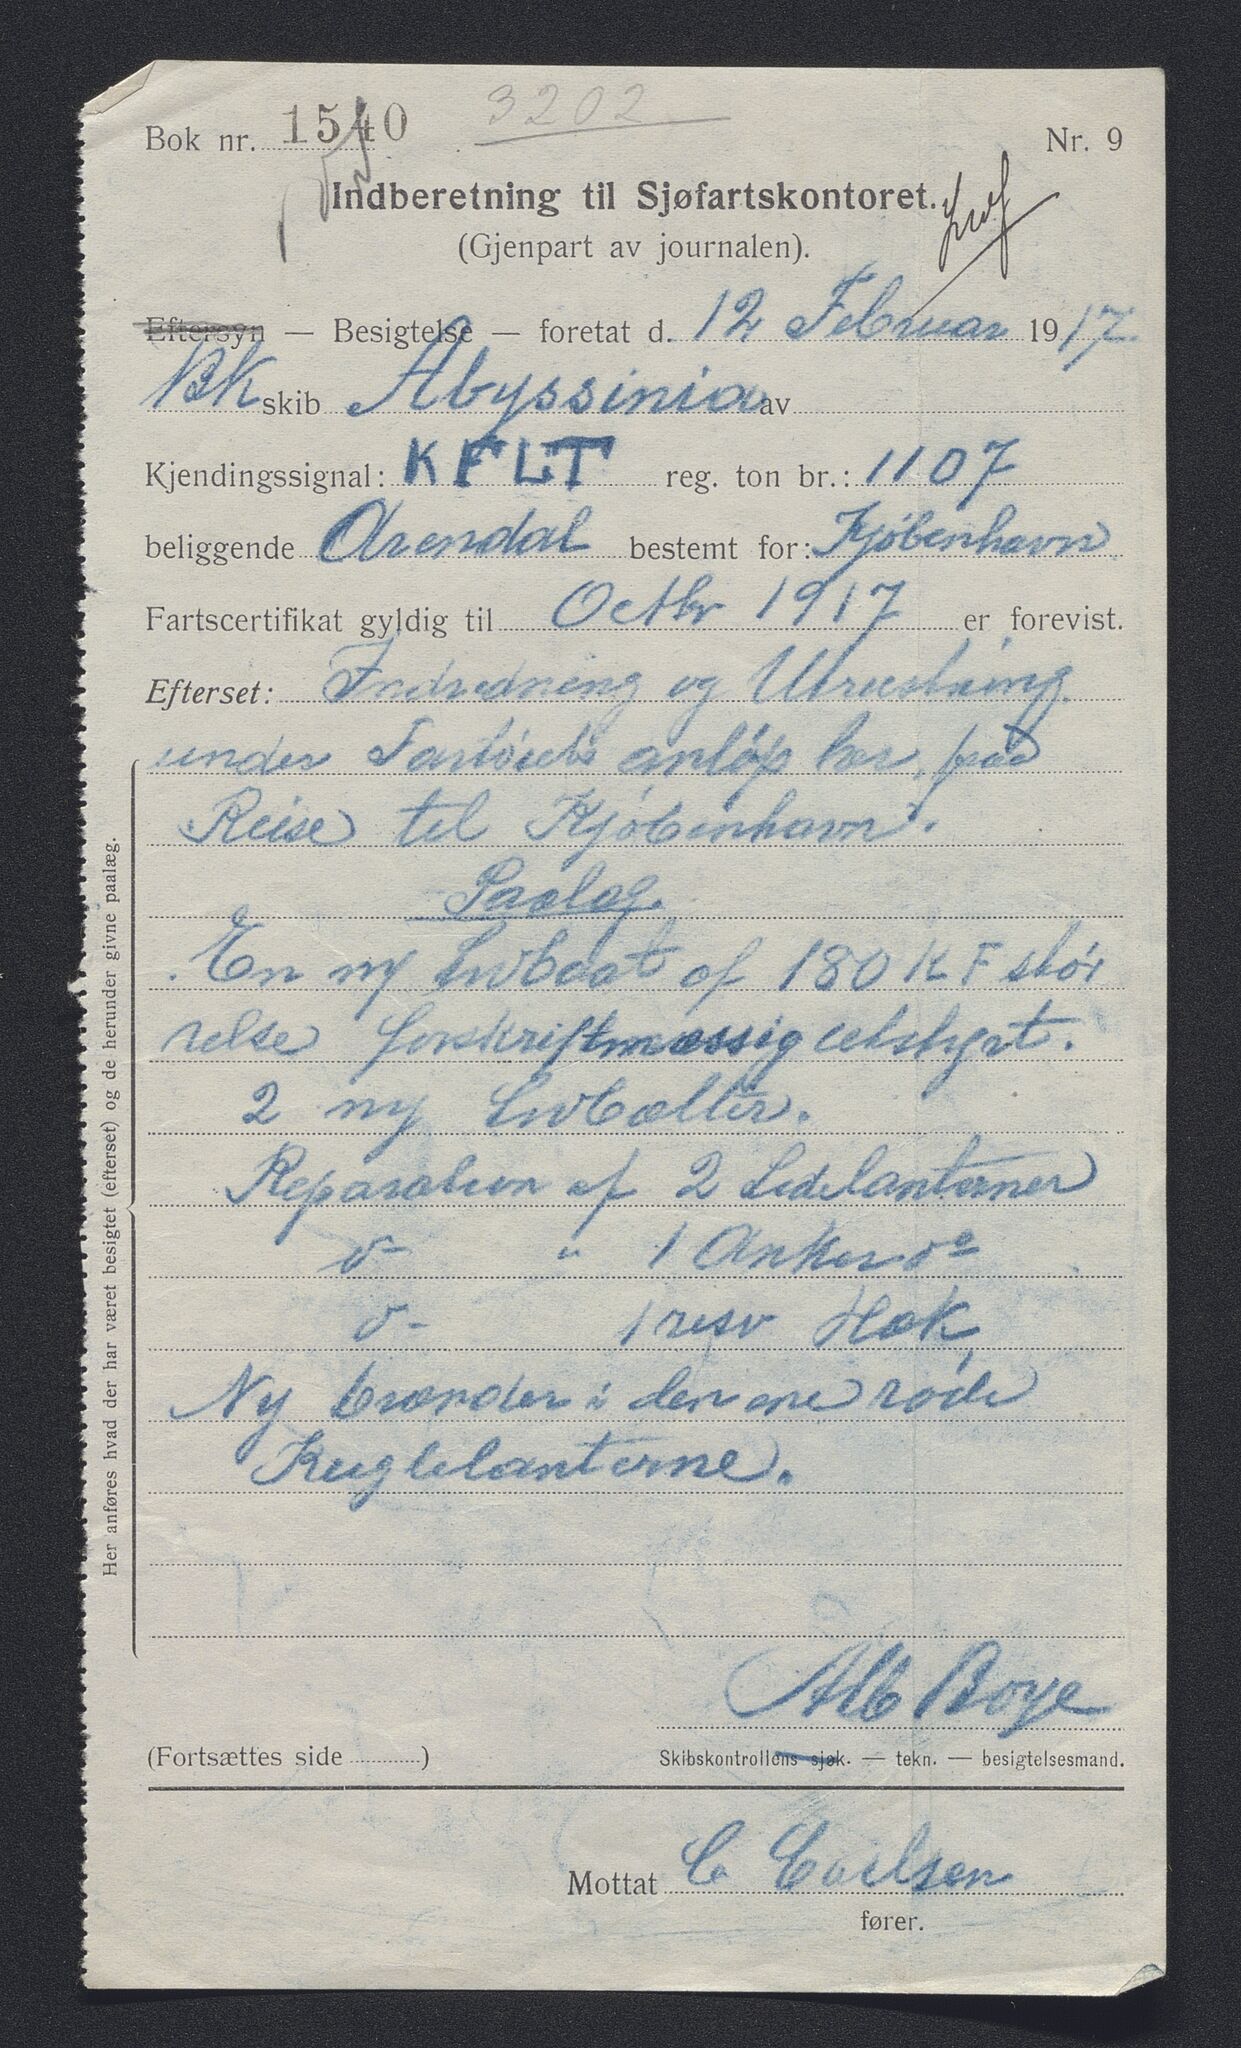 3202
Bok nr. 1540
Nr. 9
Indberetning til Sjøfartskontoret.
(Gjenpart av journalen).
Eftersyn — Besigtelse — foretat d. 12 Februar 1917.
BK skib Abyssinia av
Kjendingssignal: KFLT reg. ton br.: 1107
beliggende Arendal bestemt for: Kjøbenhavn
Fartscertifikat gyldig til Octbr 1917 er forevist.
Efterset: Indredning og Utrustning
under Fartøiets anløp her, paa
Reise til Kjøbenhavn.
Paalæg.
En ny Livbaat af 180 KF stør
relse forskriftmæssig utstyrt.
2 ny Livbælter.
Reparation af 2 Sidelanterner
do " 1 Anker do
do 1 resv Hæk
Ny brænder i den ene røde
Kuglelanterne.
Her anføres hvad der har været besigtet (efterset) og de herunder givne paalæg.
Alb Boye
(Fortsættes side ) Skibskontrollens sjøk. — tekn. — besigtelsesmand.
Mottat C Carlsen
fører.